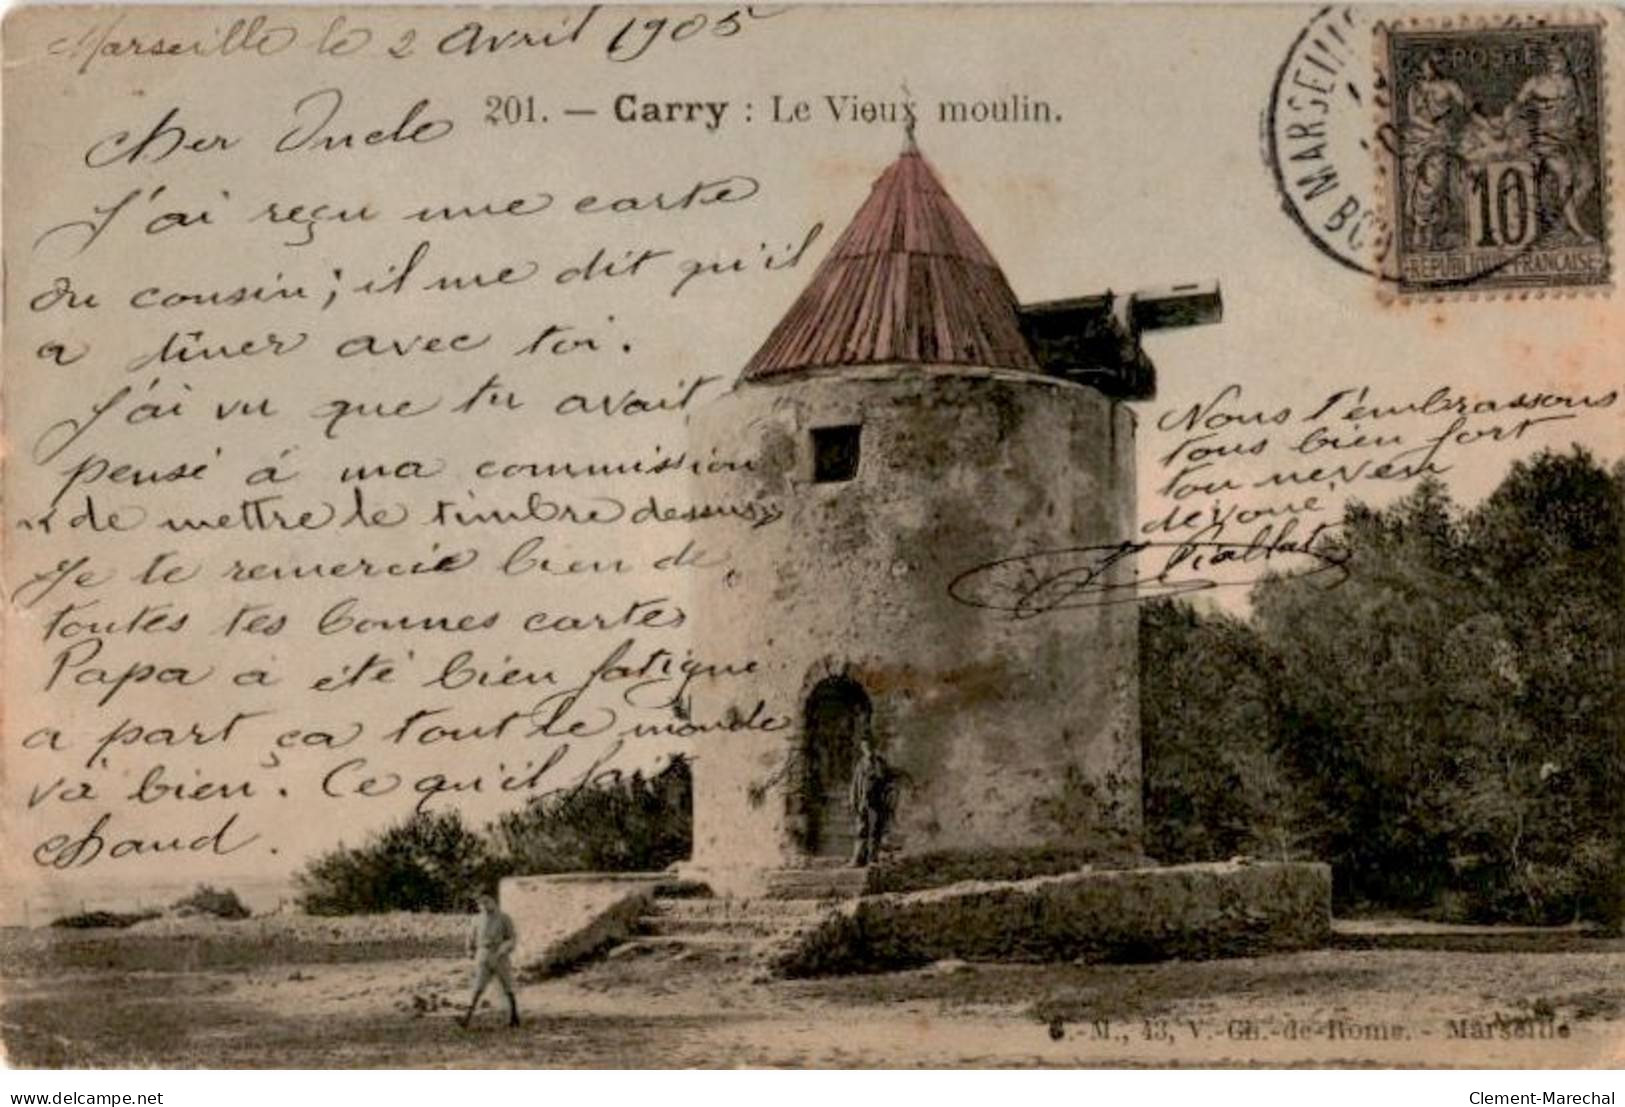 Marseille le 2 Avril 1905
201. — Carry : Le Vieux moulin.
Cher Oncle
J'ai reçu une carte
du cousin; il me dit qu'il
a dîner avec toi.
J'ai vu que tu avait
pensé á ma commission
de mettre le timbre dessus
Je te remercie bien de
toutes tes bonnes cartes
Papa a été bien fatigué
a part ça tout le monde
va bien. Ce qu'il fait
chaud.
Nous t'embrassons
tous bien fort
ton neveu
dévoué
J. Piallat
MARSEILLE
POSTE
10
RÉPUBLIQUE FRANÇAISE
G.-M., 43, V.-Ch.-de-Rome. - Marseille
www.delcampe.net
Clement-Marechal